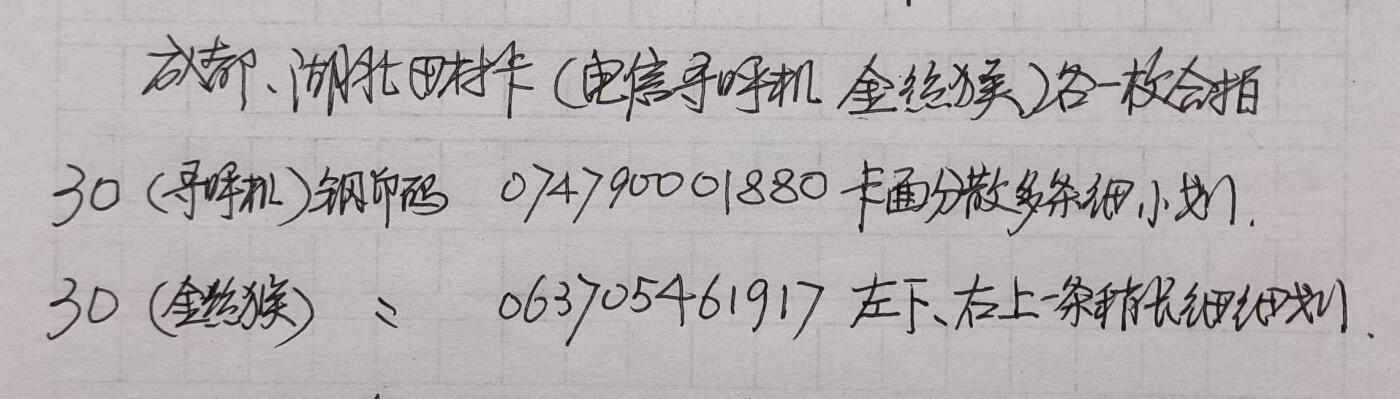 成都、湖北田村卡（电信寻呼机 金丝猴）各一枚合拍
30（寻呼机）钢印码 074790001880 卡面分散多条细小划.
30（金丝猴） 〃 063705461917 左下、右上一条稍长细细划.